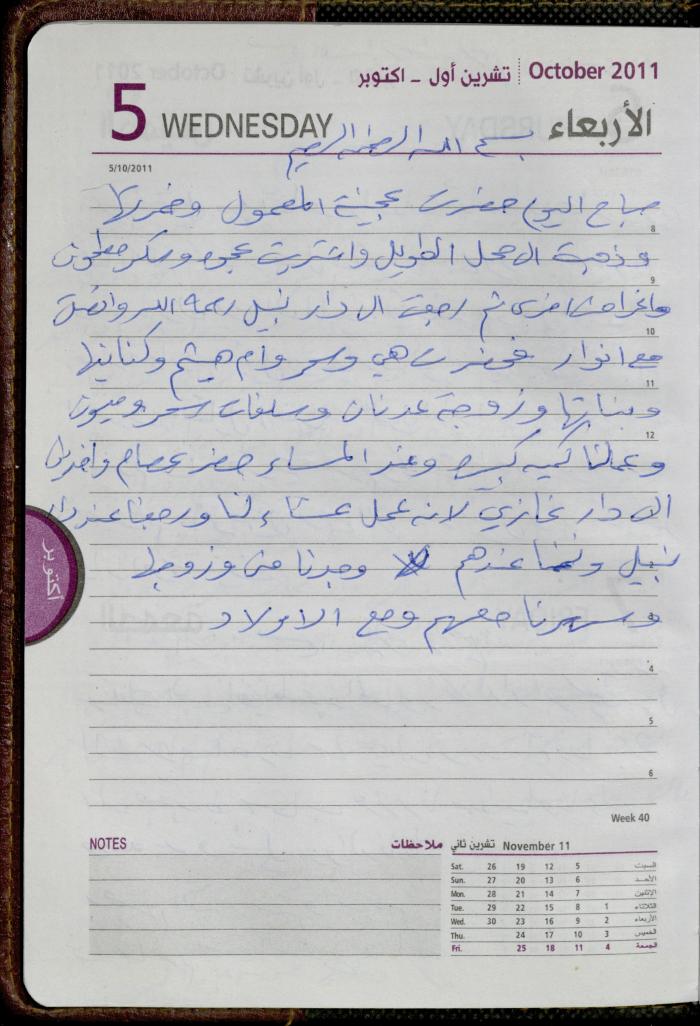 تشرين أول - اكتوبر October 2011
5 WEDNESDAY الأربعاء
بسم الله الرحمن الرحيم
5/10/2011
صباح اليوم حضرت عجينة المعمول وخمرتها
8
وذهبت الى محل الطويل واشتريت عجوه وسكر مطحون
9
واغراض اخرى ثم رجعت الى دار نبيل رحمه الله واتصلت
10
مع انوار فحضرت هي وسحر وام هيثم وكناينها
11
وبناتها وزوجة عدنان وسلفات سحر وميسون
12
وعملنا كميه كبيره وعند المساء حضر عصام واخذنا
الى دار غازي لانه عمل عشاء لنا ورجعنا عند دار
نبيل ونمنا عندهم وجدنا منى وزوجها
2
وسهرنا معهم ومع الاولاد
3
4
5
6
أكتوبر
Week 40
NOTES ملاحظات
November 11 تشرين ثاني
Sat. 26 19 12 5 السبت
Sun. 27 20 13 6 الأحد
Mon. 28 21 14 7 الإثنين
Tue. 29 22 15 8 1 الثلاثاء
Wed. 30 23 16 9 2 الأربعاء
Thu. 24 17 10 3 الخميس
Fri. 25 18 11 4 الجمعة